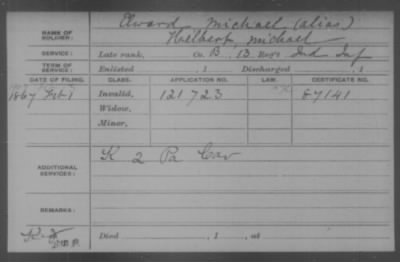 NAME OF SOLDIER: Elward, Michael (alias)
Helbert, Michael
SERVICE: Late rank, Co. B, 13 Reg't Ind Inf
TERM OF SERVICE: Enlisted , 1 Discharged , 1
DATE OF FILING. CLASS. APPLICATION NO. LAW. CERTIFICATE NO.
1867 Feb 1 Invalid, 121723 87141
Widow,
Minor,
ADDITIONAL SERVICES: K 2 Pa Cav
REMARKS:
Died , 1 , at